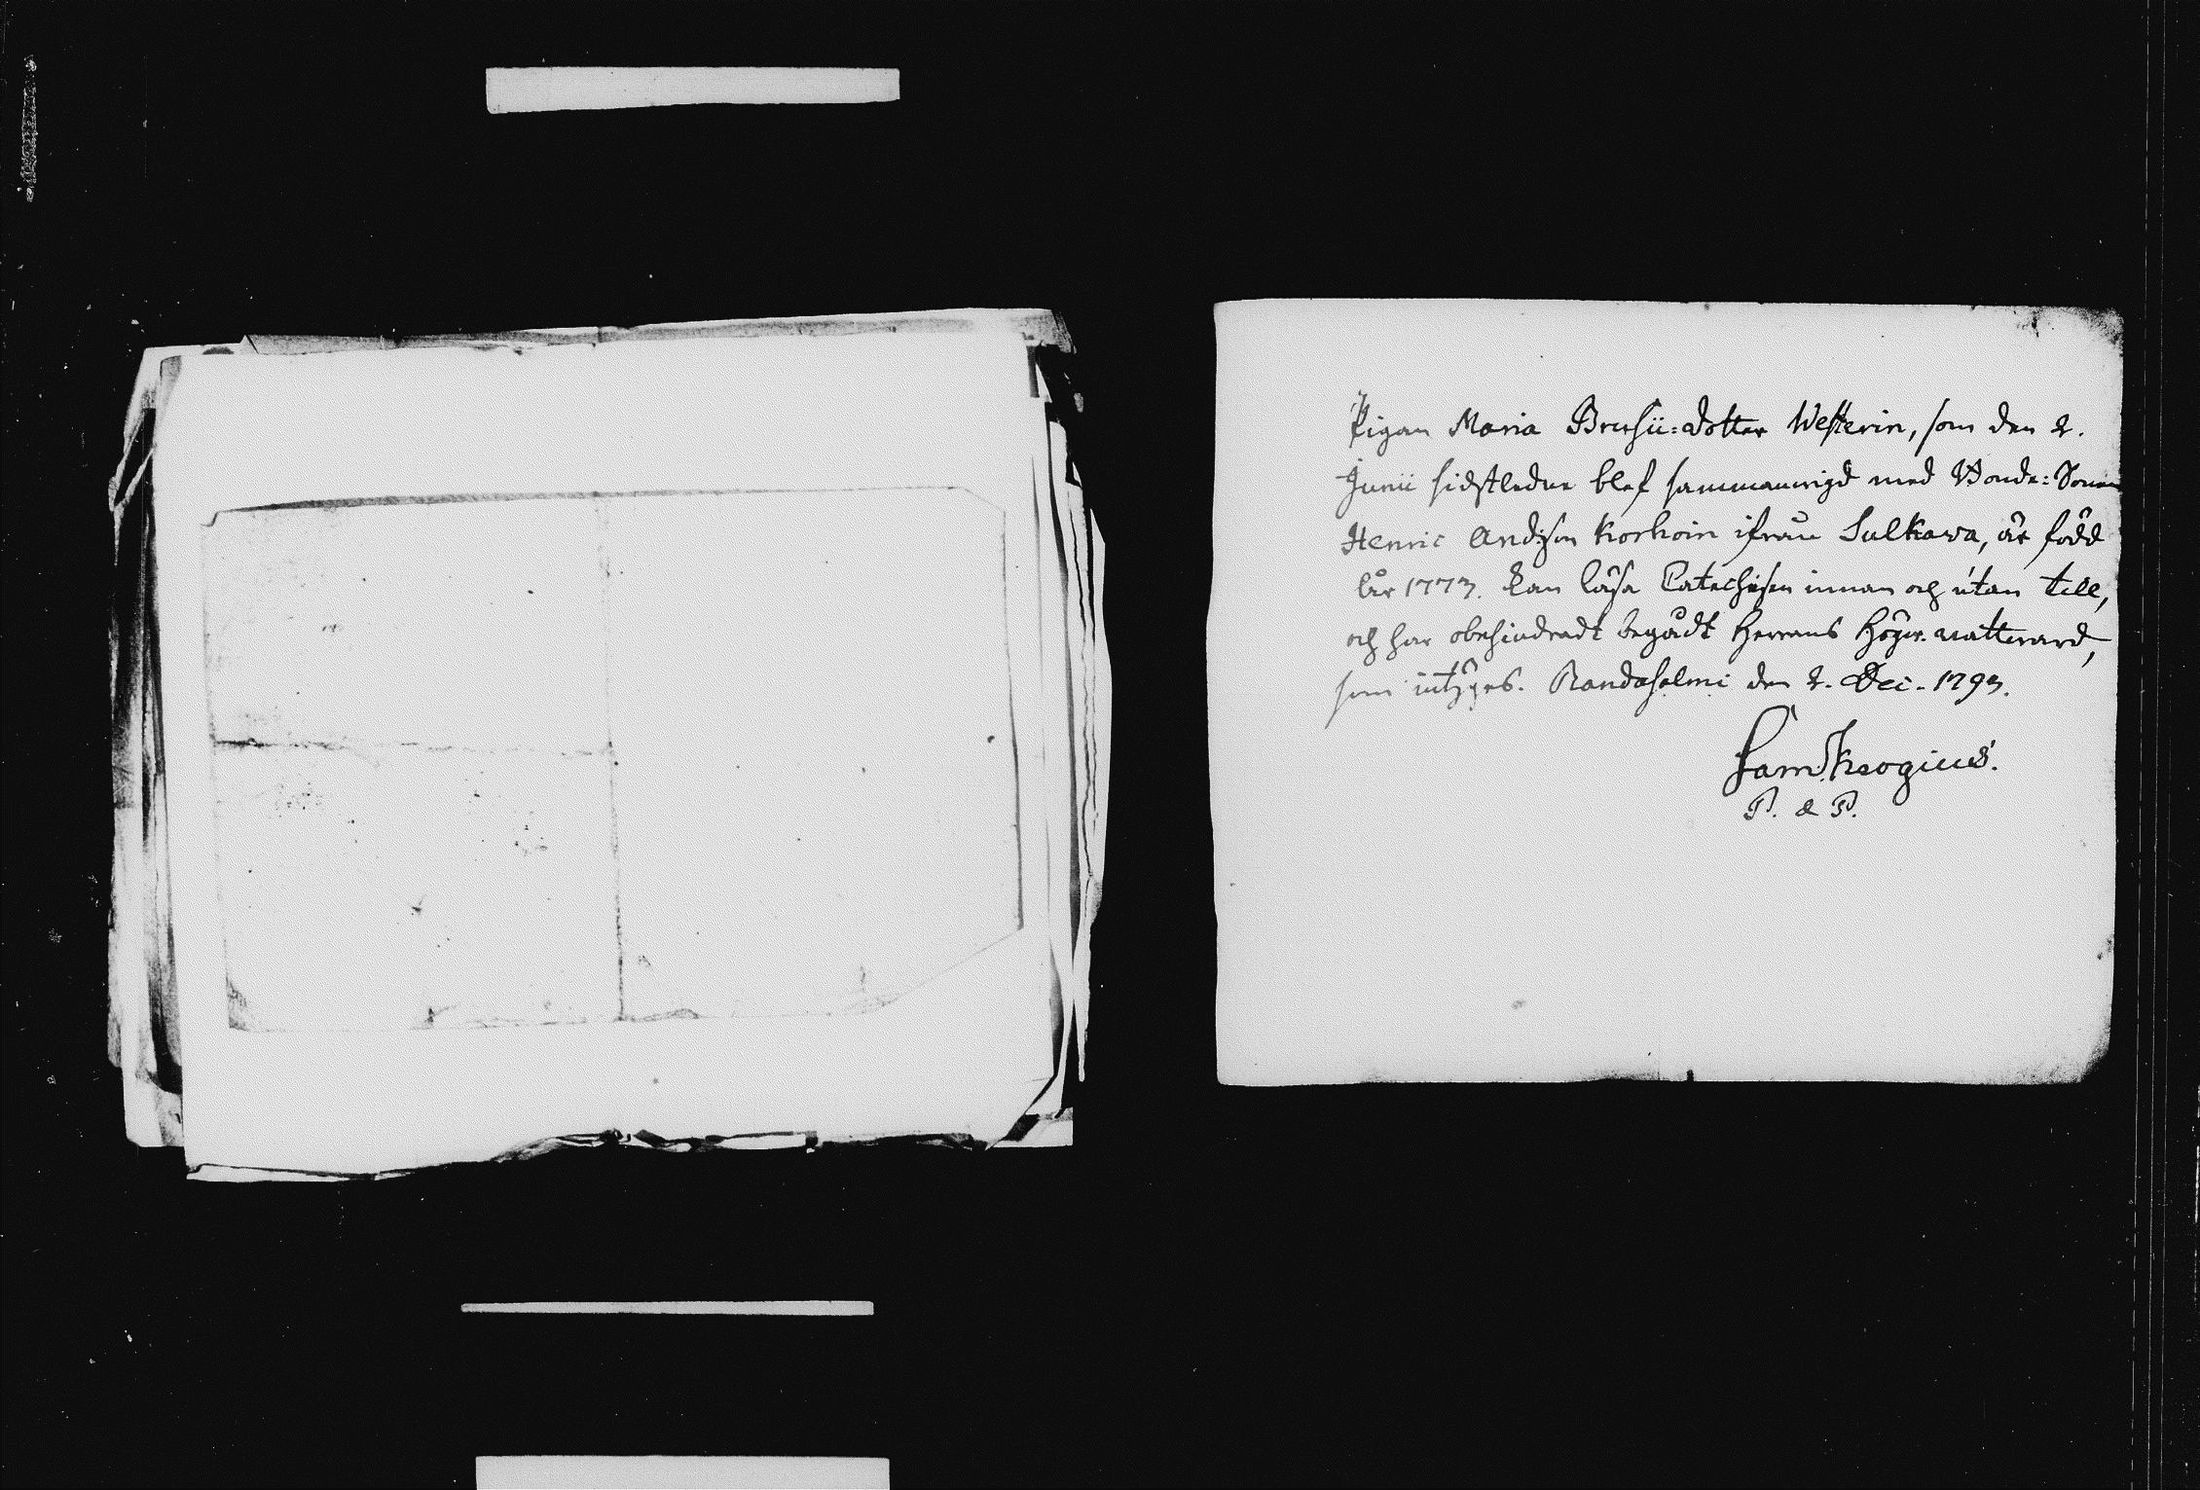 Pigan Maria Brusii=dotter Westerin, som den 2.
Junii sidstledne blef sammanvigd med Bonde=Sonen
Henric Andsson Korhoin ifrån Sulkava, är född
år 1773. kan läsa Catechesen innan och utan till,
och har obehindradt begådt Herrans Högw. nattward,
som intygas. Randasalmi den 2. Dec. 1793.
Sam Krogius.
P. & P.